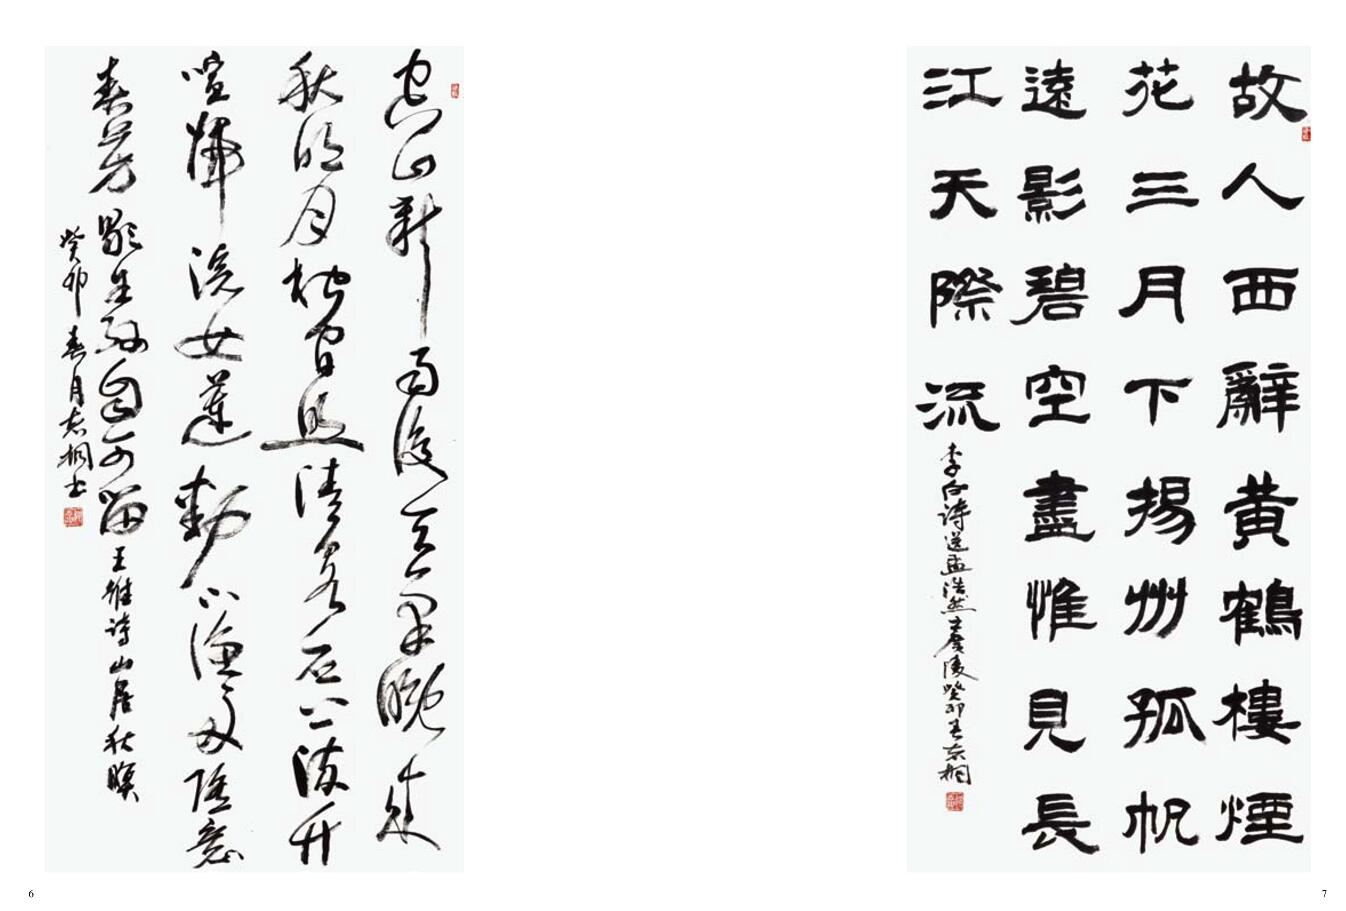 空山新雨後天氣晚來
秋明月松間照清泉石上流竹
喧歸浣女蓮動下漁舟隨意
春芳歇王孫自可留王維詩山居秋暝
癸卯春月志桐书
6
故人西辭黄鶴樓煙
花三月下揚州孤帆
遠影碧空盡惟見長
江天際流
李白詩送孟浩然之廣陵癸卯春志桐
7